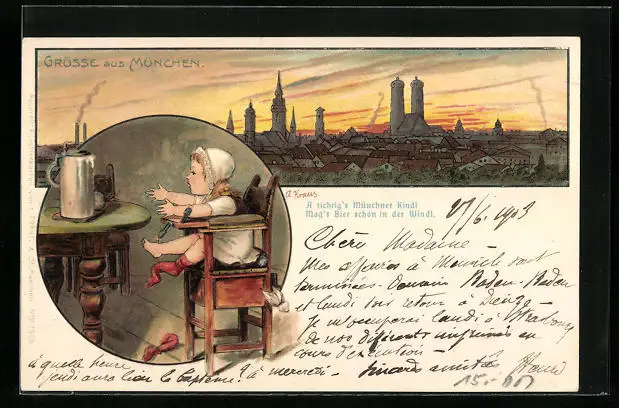 GRÜSSE AUS MÜNCHEN.
A. Kraus
A richtig's Münchner Kindl
Mag's Bier schon in der Windl.
17/6. 1903
Chère Madame –
Mes affaires à sont
terminées. Demain Baden-Baden
et lundi soir retour à –
Je m'occuperai lundi à Strasbourg
de nos différents imprimés en
cours d'exécution –
amitiés
à quelle heure
jeudi aura lieu le baptême? à mercredi –
15.-